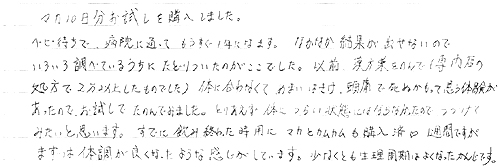 マカ10日分お試しを購入しました。
ベビ待ちで、病院に通って もうすぐ1年になります。なかなか結果が出せないので
いろいろ調べているうちに たどりついたのがここでした。以前 漢方薬をのんで(専門店の
処方で2万以上したものでした) 体に合わなくて、めまいはするわ、頭痛で たおれるかって思う体験が
あったので、お試しで のんでみました。とりあえず 体に つらい状態にはならなかったので つづけて
みたいと思います。すでに飲み終わった時用に マカとカムカムも購入済 1週間ですが
まずは体調が良くなったような感じがしています。少なくとも生理周期はよくなったかんじです。